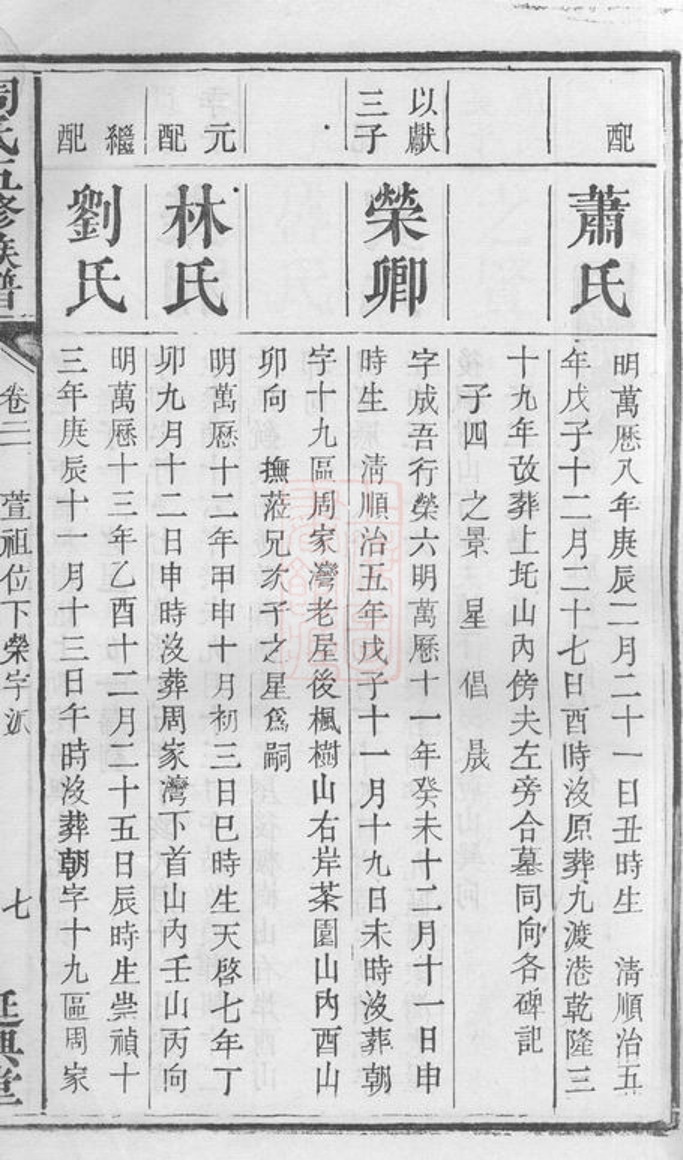 配
蕭氏
明萬厯八年庚辰二月二十一日丑時生　清順治五
年戊子十二月二十七日酉時沒原葬九渡港乾隆三
十九年改葬上圫山內傍夫左旁合墓同向各碑記
子四　之景　星　倡　晟
以獻三子
榮卿
字成吾行榮六明萬厯十一年癸未十二月十一日申
時生　清順治五年戊子十一月十九日未時沒葬朝
字十九區周家灣老屋後楓樹山右岸茶園山內酉山
卯向　撫蒞兄次子之星爲嗣
元配
林氏
明萬厯十二年甲申十月初三日巳時生天啓七年丁
卯九月十二日申時沒葬周家灣下首山內壬山丙向
繼配
劉氏
明萬厯十三年乙酉十二月二十五日辰時生崇禎十
三年庚辰十一月十三日午時沒葬朝字十九區周家
周氏五修族譜　卷二　萱祖位下榮字派　七